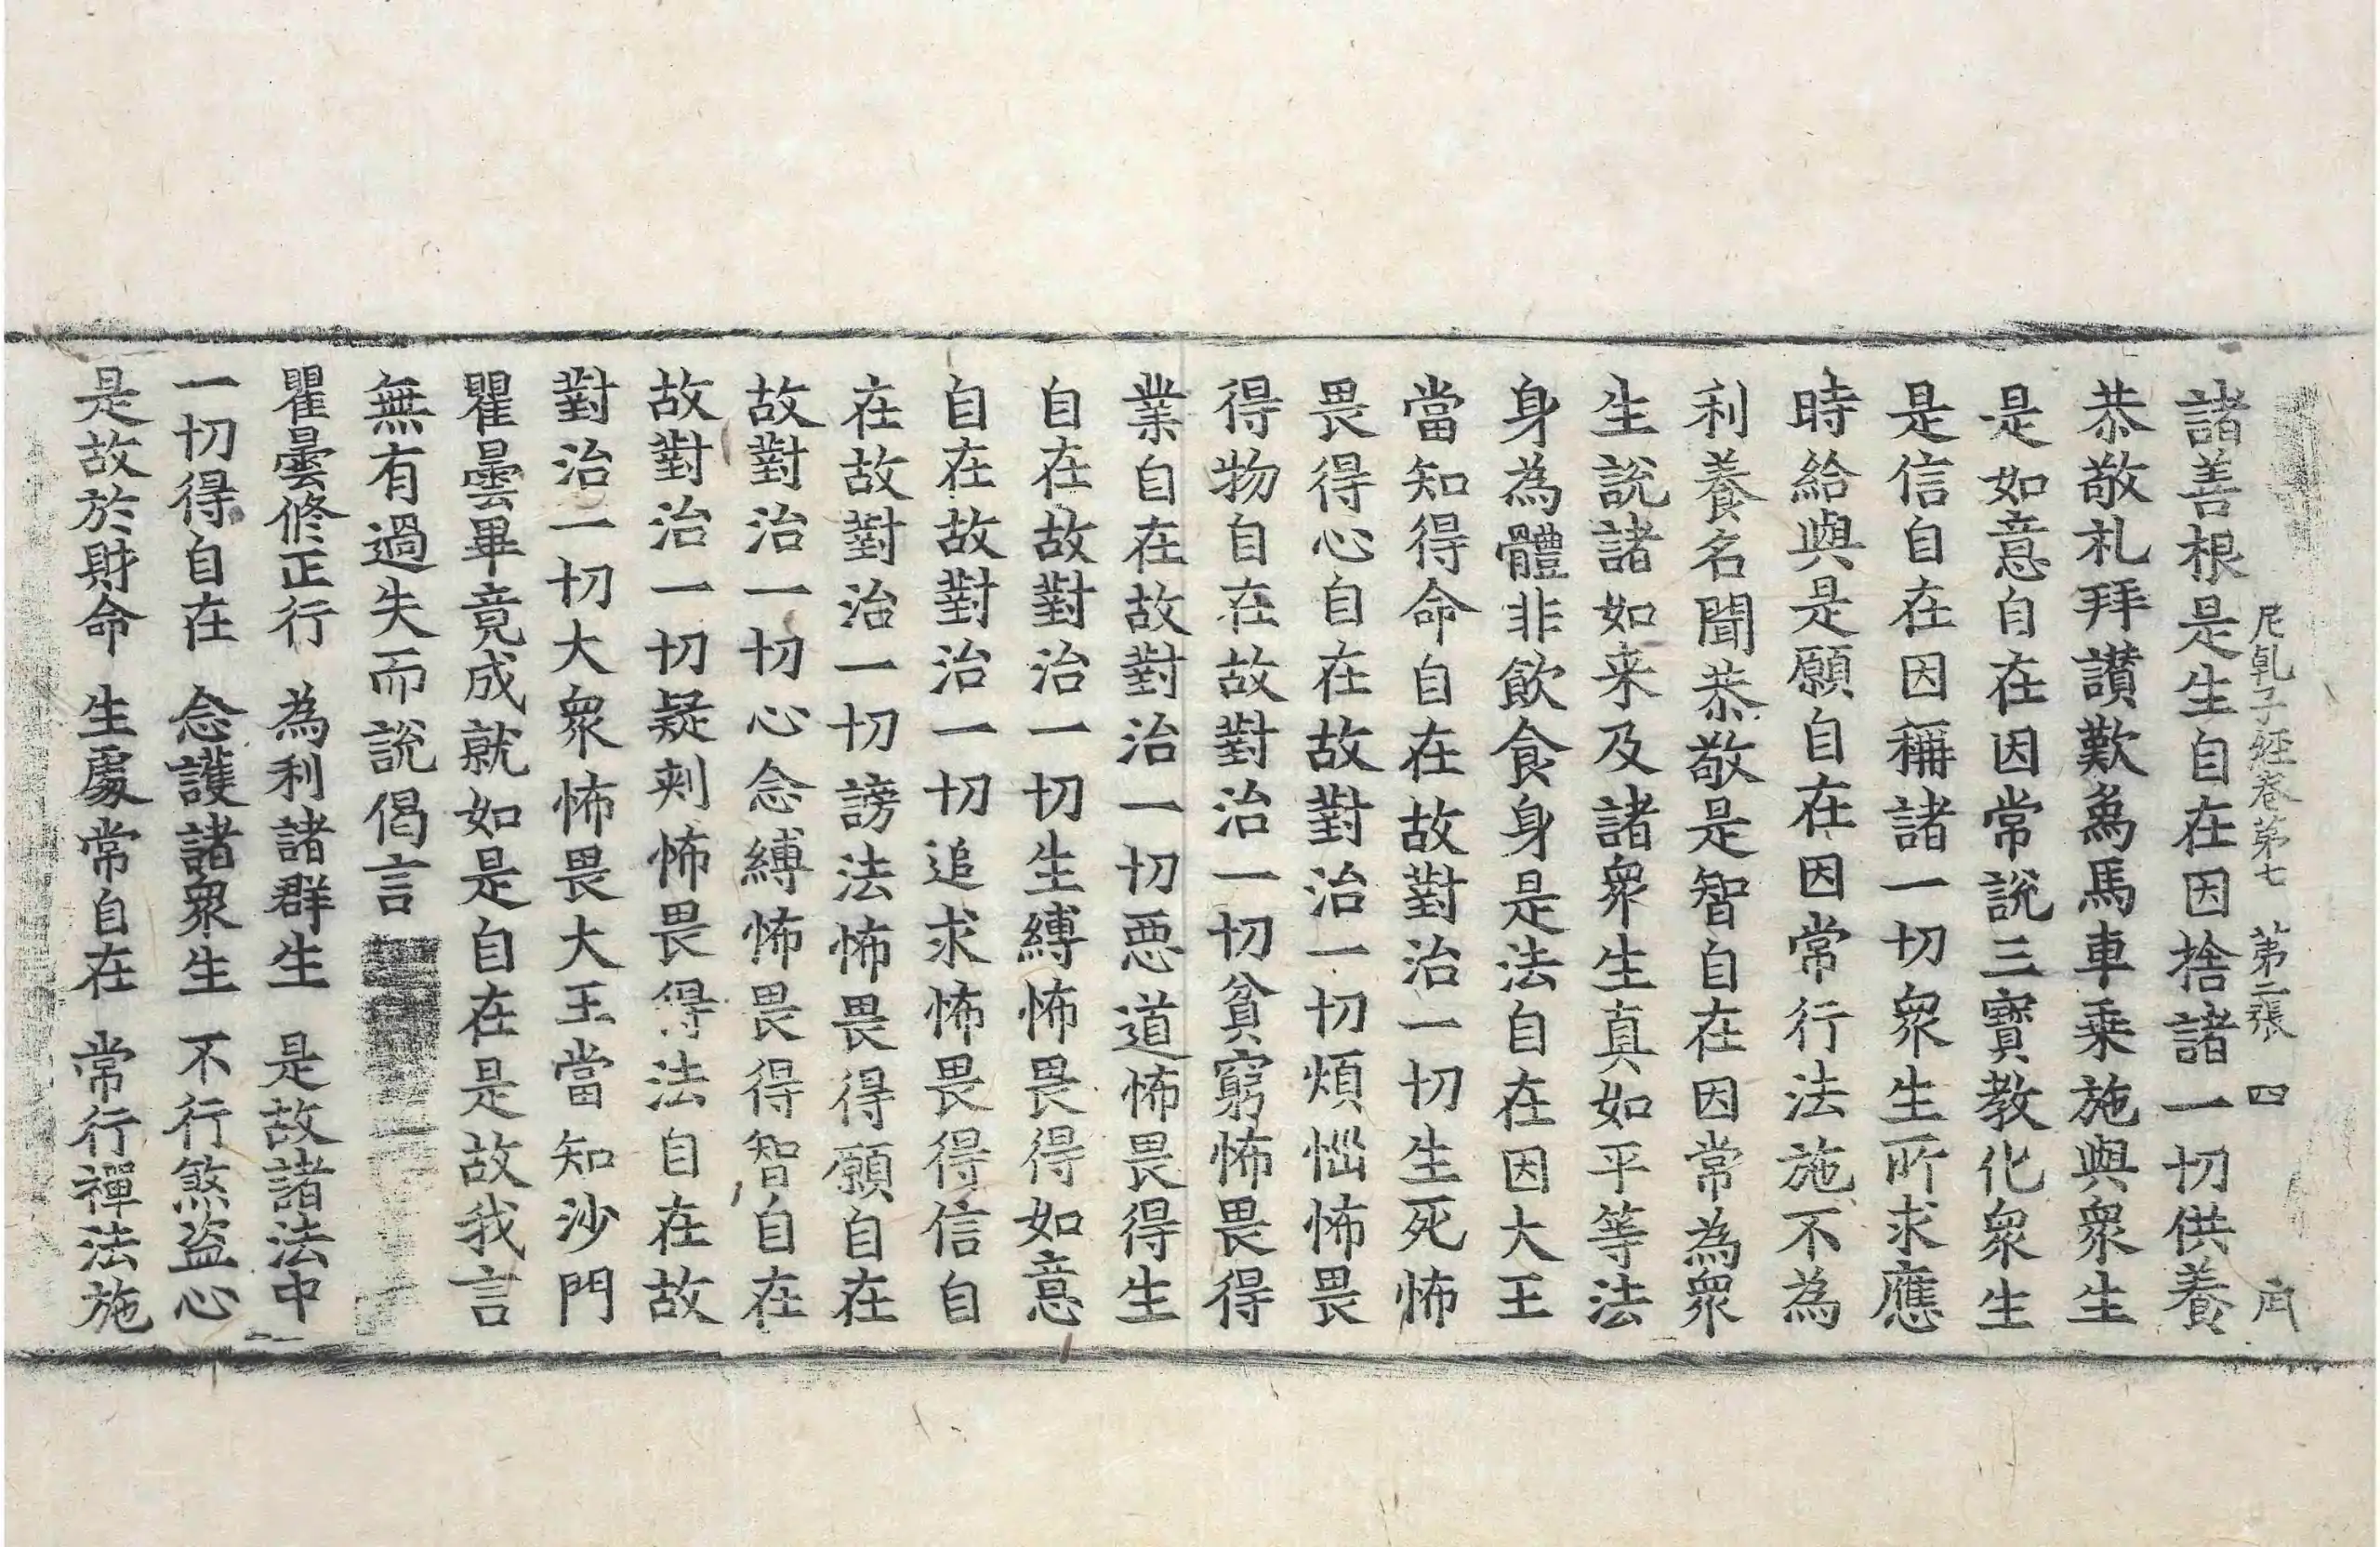 尼乹子経卷第七　第二張　四
諸善根是生自在因捨諸一切供養
恭敬札拜讃歎象馬車乗施與衆生
是如意自在因常說三寶教化衆生
是信自在因稱諸一切衆生所求應
時給與是願自在因常行法施不為
利養名聞恭敬是智自在因常為衆
生說諸如来及諸衆生真如平等法
身為體非飲食身是法自在因大王
當知得命自在故對治一切生死怖
畏得心自在故對治一切煩惱怖畏
得物自在故對治一切貧窮怖畏得
業自在故對治一切惡道怖畏得生
自在故對治一切生縛怖畏得如意
自在故對治一切追求怖畏得信自
在故對治一切謗法怖畏得願自在
故對治一切心念縛怖畏得智自在
故對治一切疑刾怖畏得法自在故
對治一切大衆怖畏大王當知沙門
瞿曇畢竟成就如是自在是故我言
無有過失而說偈言
瞿曇修正行　為利諸群生　是故諸法中
一切得自在　念護諸衆生　不行煞盗心
是故於財命　生處常自在　常行禪法施